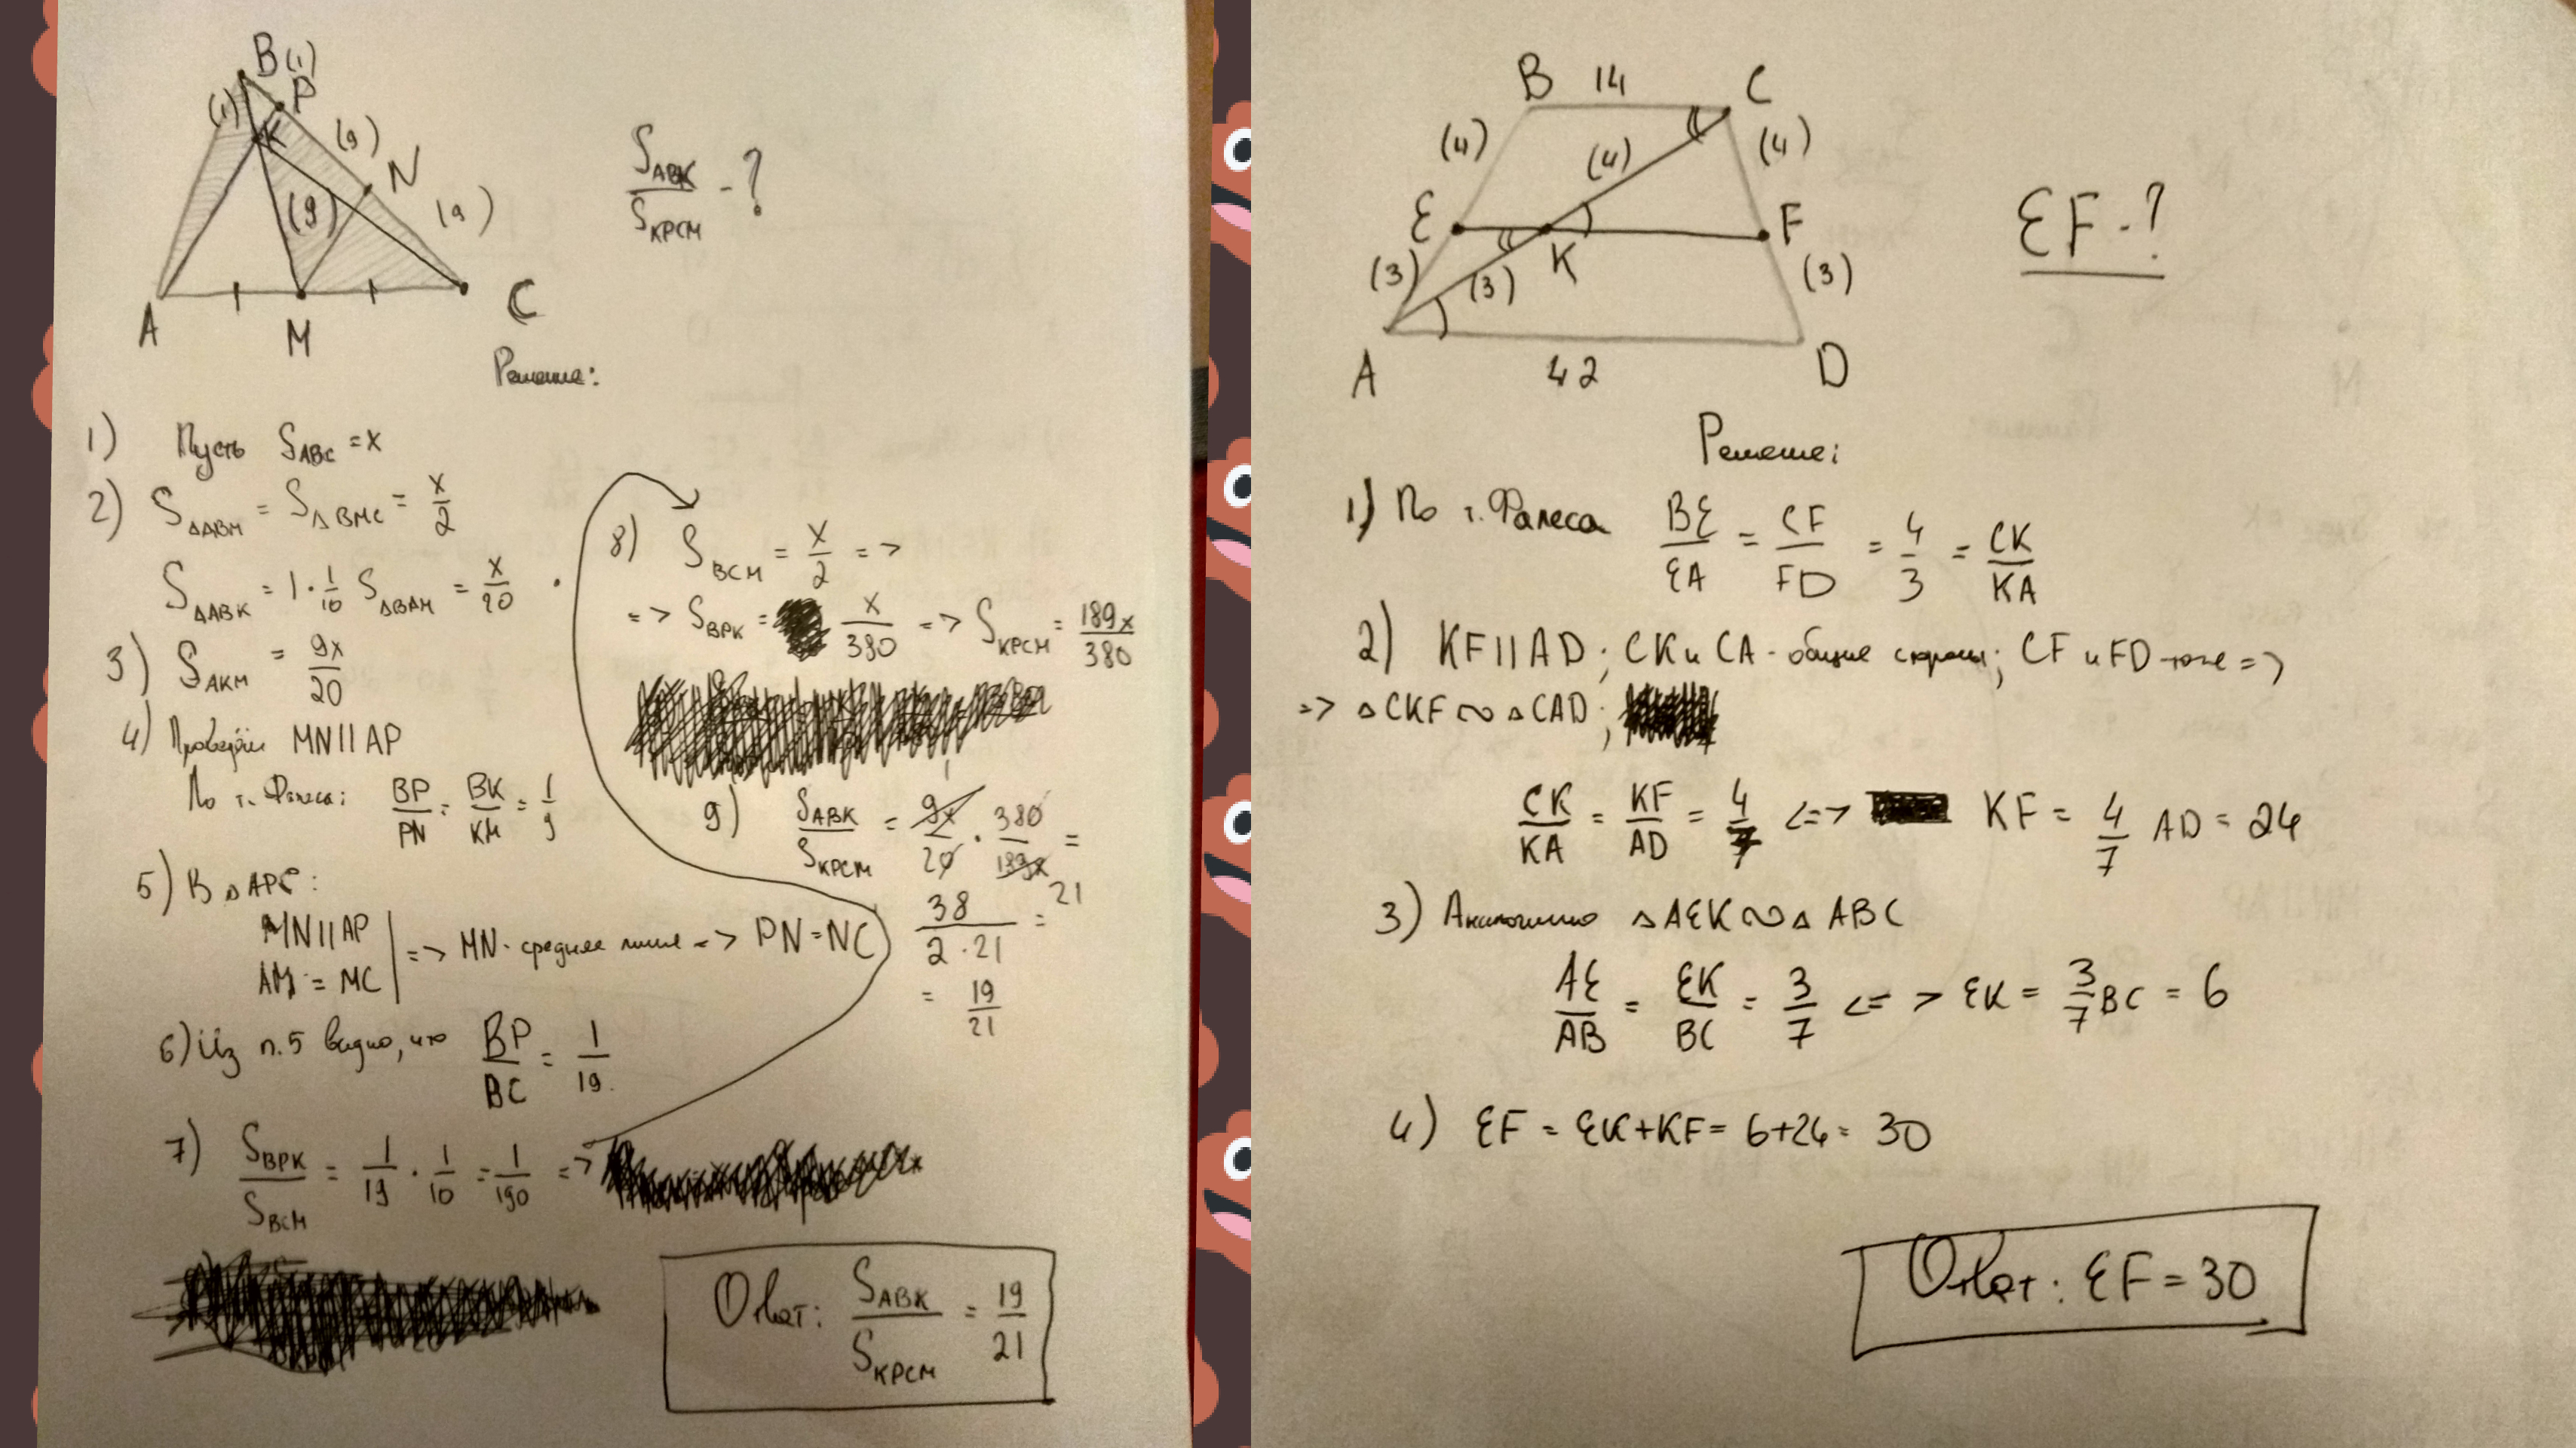 B (1)
P
(1)
K
(9)
N
(9)
(9)
A
M
C
S_ABK / S_KPCM - ?
Решение:
1) Пусть S_ABC = x
2) S_ΔABM = S_ΔBMC = x/2
S_ΔABK = 1 · 1/10 S_ΔBAM = x/20
3) S_AKM = 9x/20
4) Проведём MN || AP
По т. Фалеса: BP/PN = BK/KM = 1/9
5) В ΔAPC:
MN || AP
AM = MC
=> MN - средняя линия => PN = NC
6) Из п.5 видно, что BP/BC = 1/19.
7) S_BPK / S_BCM = 1/19 · 1/10 = 1/190 =>
8) S_BCM = x/2 =>
=> S_BPK = x/380 => S_KPCM = 189x/380
9) S_ABK / S_KPCM = 9x/20 · 380/189x =
1
21
38 / 2·21 =
= 19/21
Ответ: S_ABK / S_KPCM = 19/21
B 14 C
(4)
(4)
(4)
E
K
F
(3)
(3)
(3)
A
42
D
EF - ?
Решение:
1) По т. Фалеса BE/EA = CF/FD = 4/3 = CK/KA
2) KF || AD; CK и CA - общие стороны; CF и FD - тоже =>
=> ΔCKF ∾ ΔCAD;
CK/KA = KF/AD = 4/7 <=> KF = 4/7 AD = 24
3) Аналогично ΔAEK ∾ ΔABC
AE/AB = EK/BC = 3/7 <=> EK = 3/7 BC = 6
4) EF = EK+KF = 6+24 = 30
Ответ: EF = 30